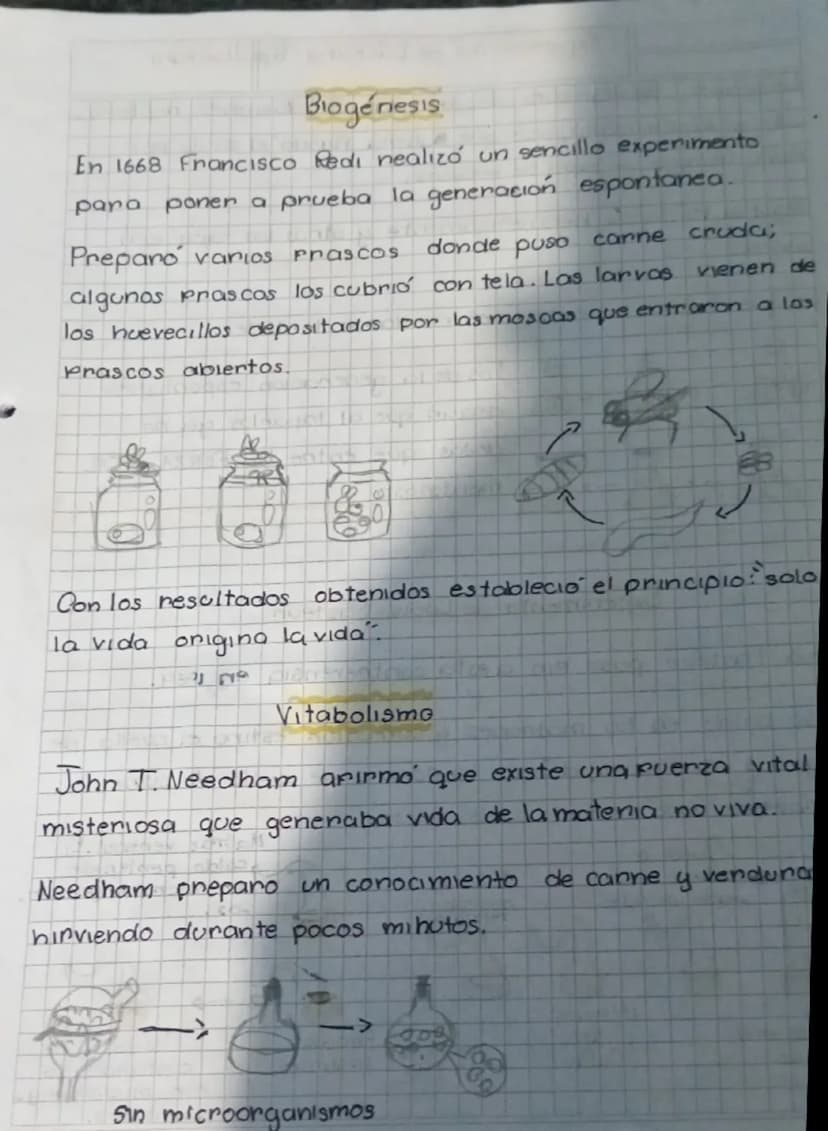 Biogénesis
En 1668 Francisco Redi realizó un sencillo experimento
para poner a prueba la generación espontanea.
Preparó varios frascos donde puso carne cruda;
algunos frascos los cubrió con tela. Las larvas vienen de
los huevecillos depositados por las moscas que entraron a los
frascos abiertos.
Con los resultados obtenidos estableció el principio: "solo
la vida origina la vida".
Vitabolismo
John T. Needham afirmó que existe una fuerza vital
misteriosa que generaba vida de la materia no viva.
Needham preparo un conocimiento de carne y verdura
hirviendo durante pocos minutos.
Sin microorganismos